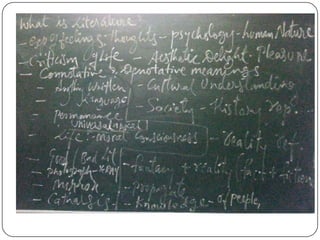 What is Literature?
- exp of feelings - thoughts - psychology - human Nature
- Criticism of Life - Aesthetic Delight - Pleasure
- Connotative & Denotative meanings
- Written - Cultural Understanding
- Language - Society - History rep.
Permanence
Universal
- Life - moral consciousness - reality
- Good / Bad lit - fantasy + reality / Fact + fiction
- photograph X-RAY
- - Propagate
- Catharsis - Knowledge of people